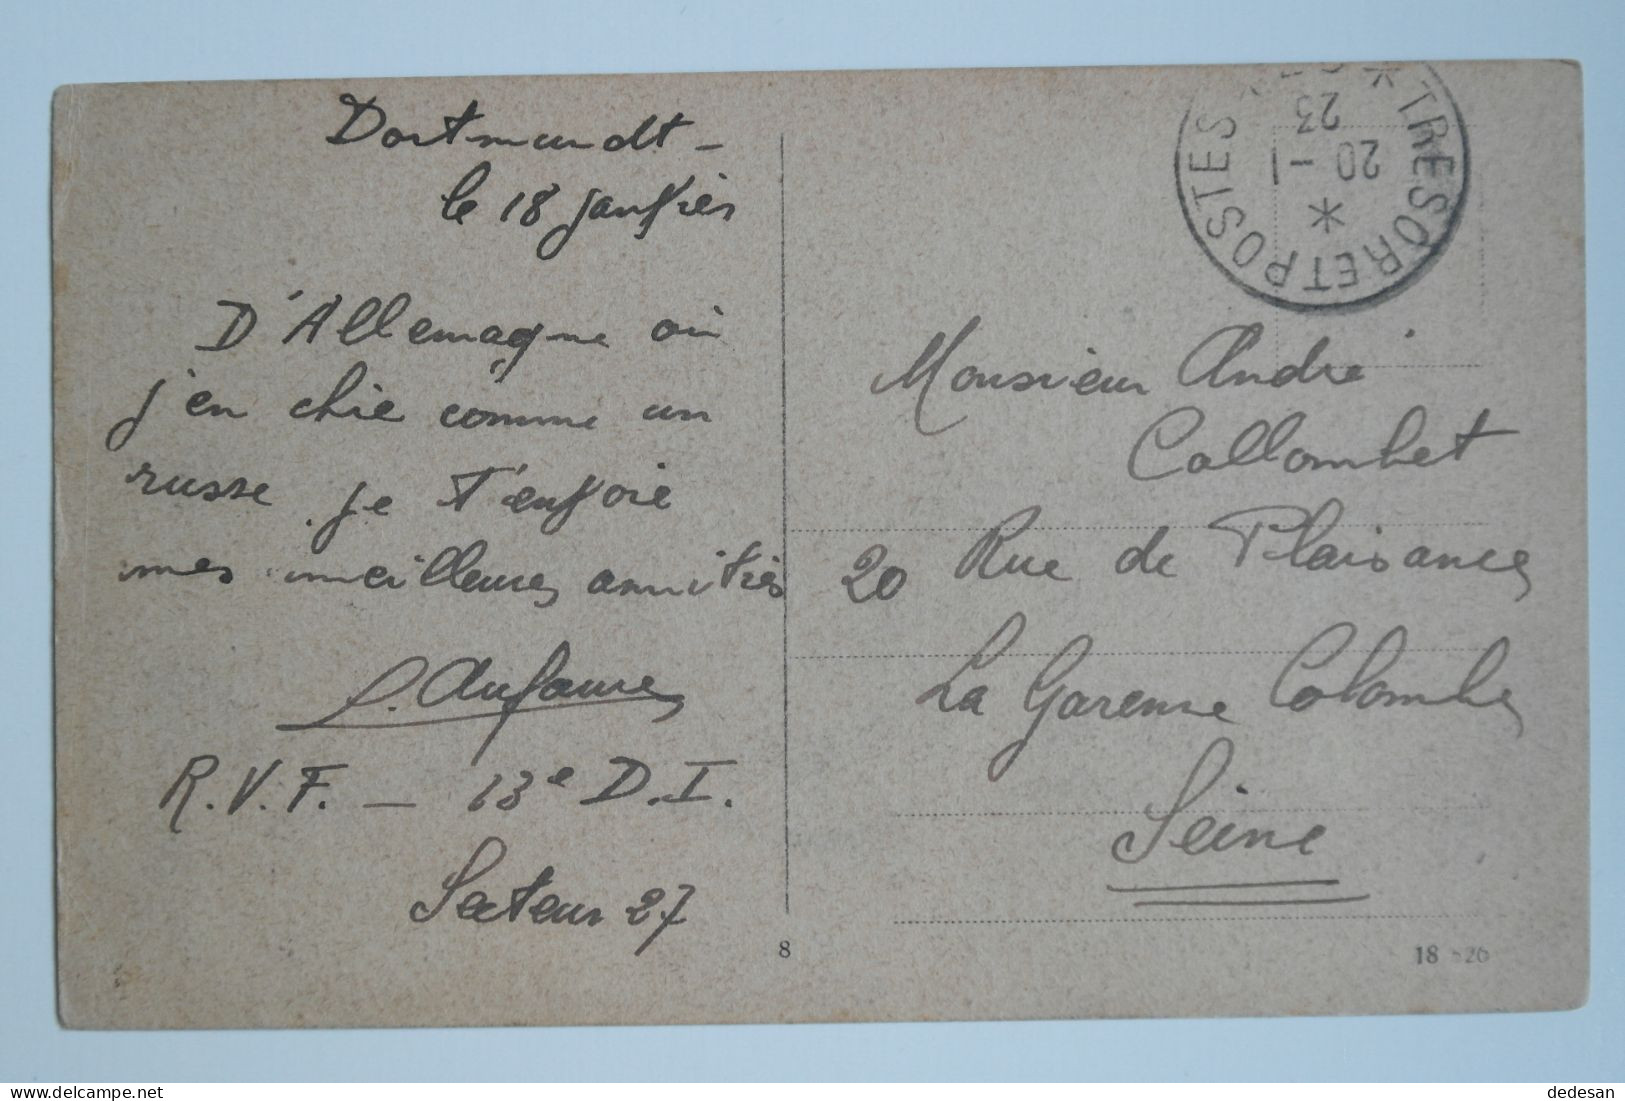 Dortmundt -
le 18 janvier
D'Allemagne où
j'en chie comme un
russe je t'envoie
mes meilleures amitiés
R.V.F. - 13e D.I.
Secteur 27
TRESOR ET POSTES
20 - 1
23
Monsieur André
Collombet
20 Rue de Plaisance
La Garenne Colombe
Seine
8
18
dedesan